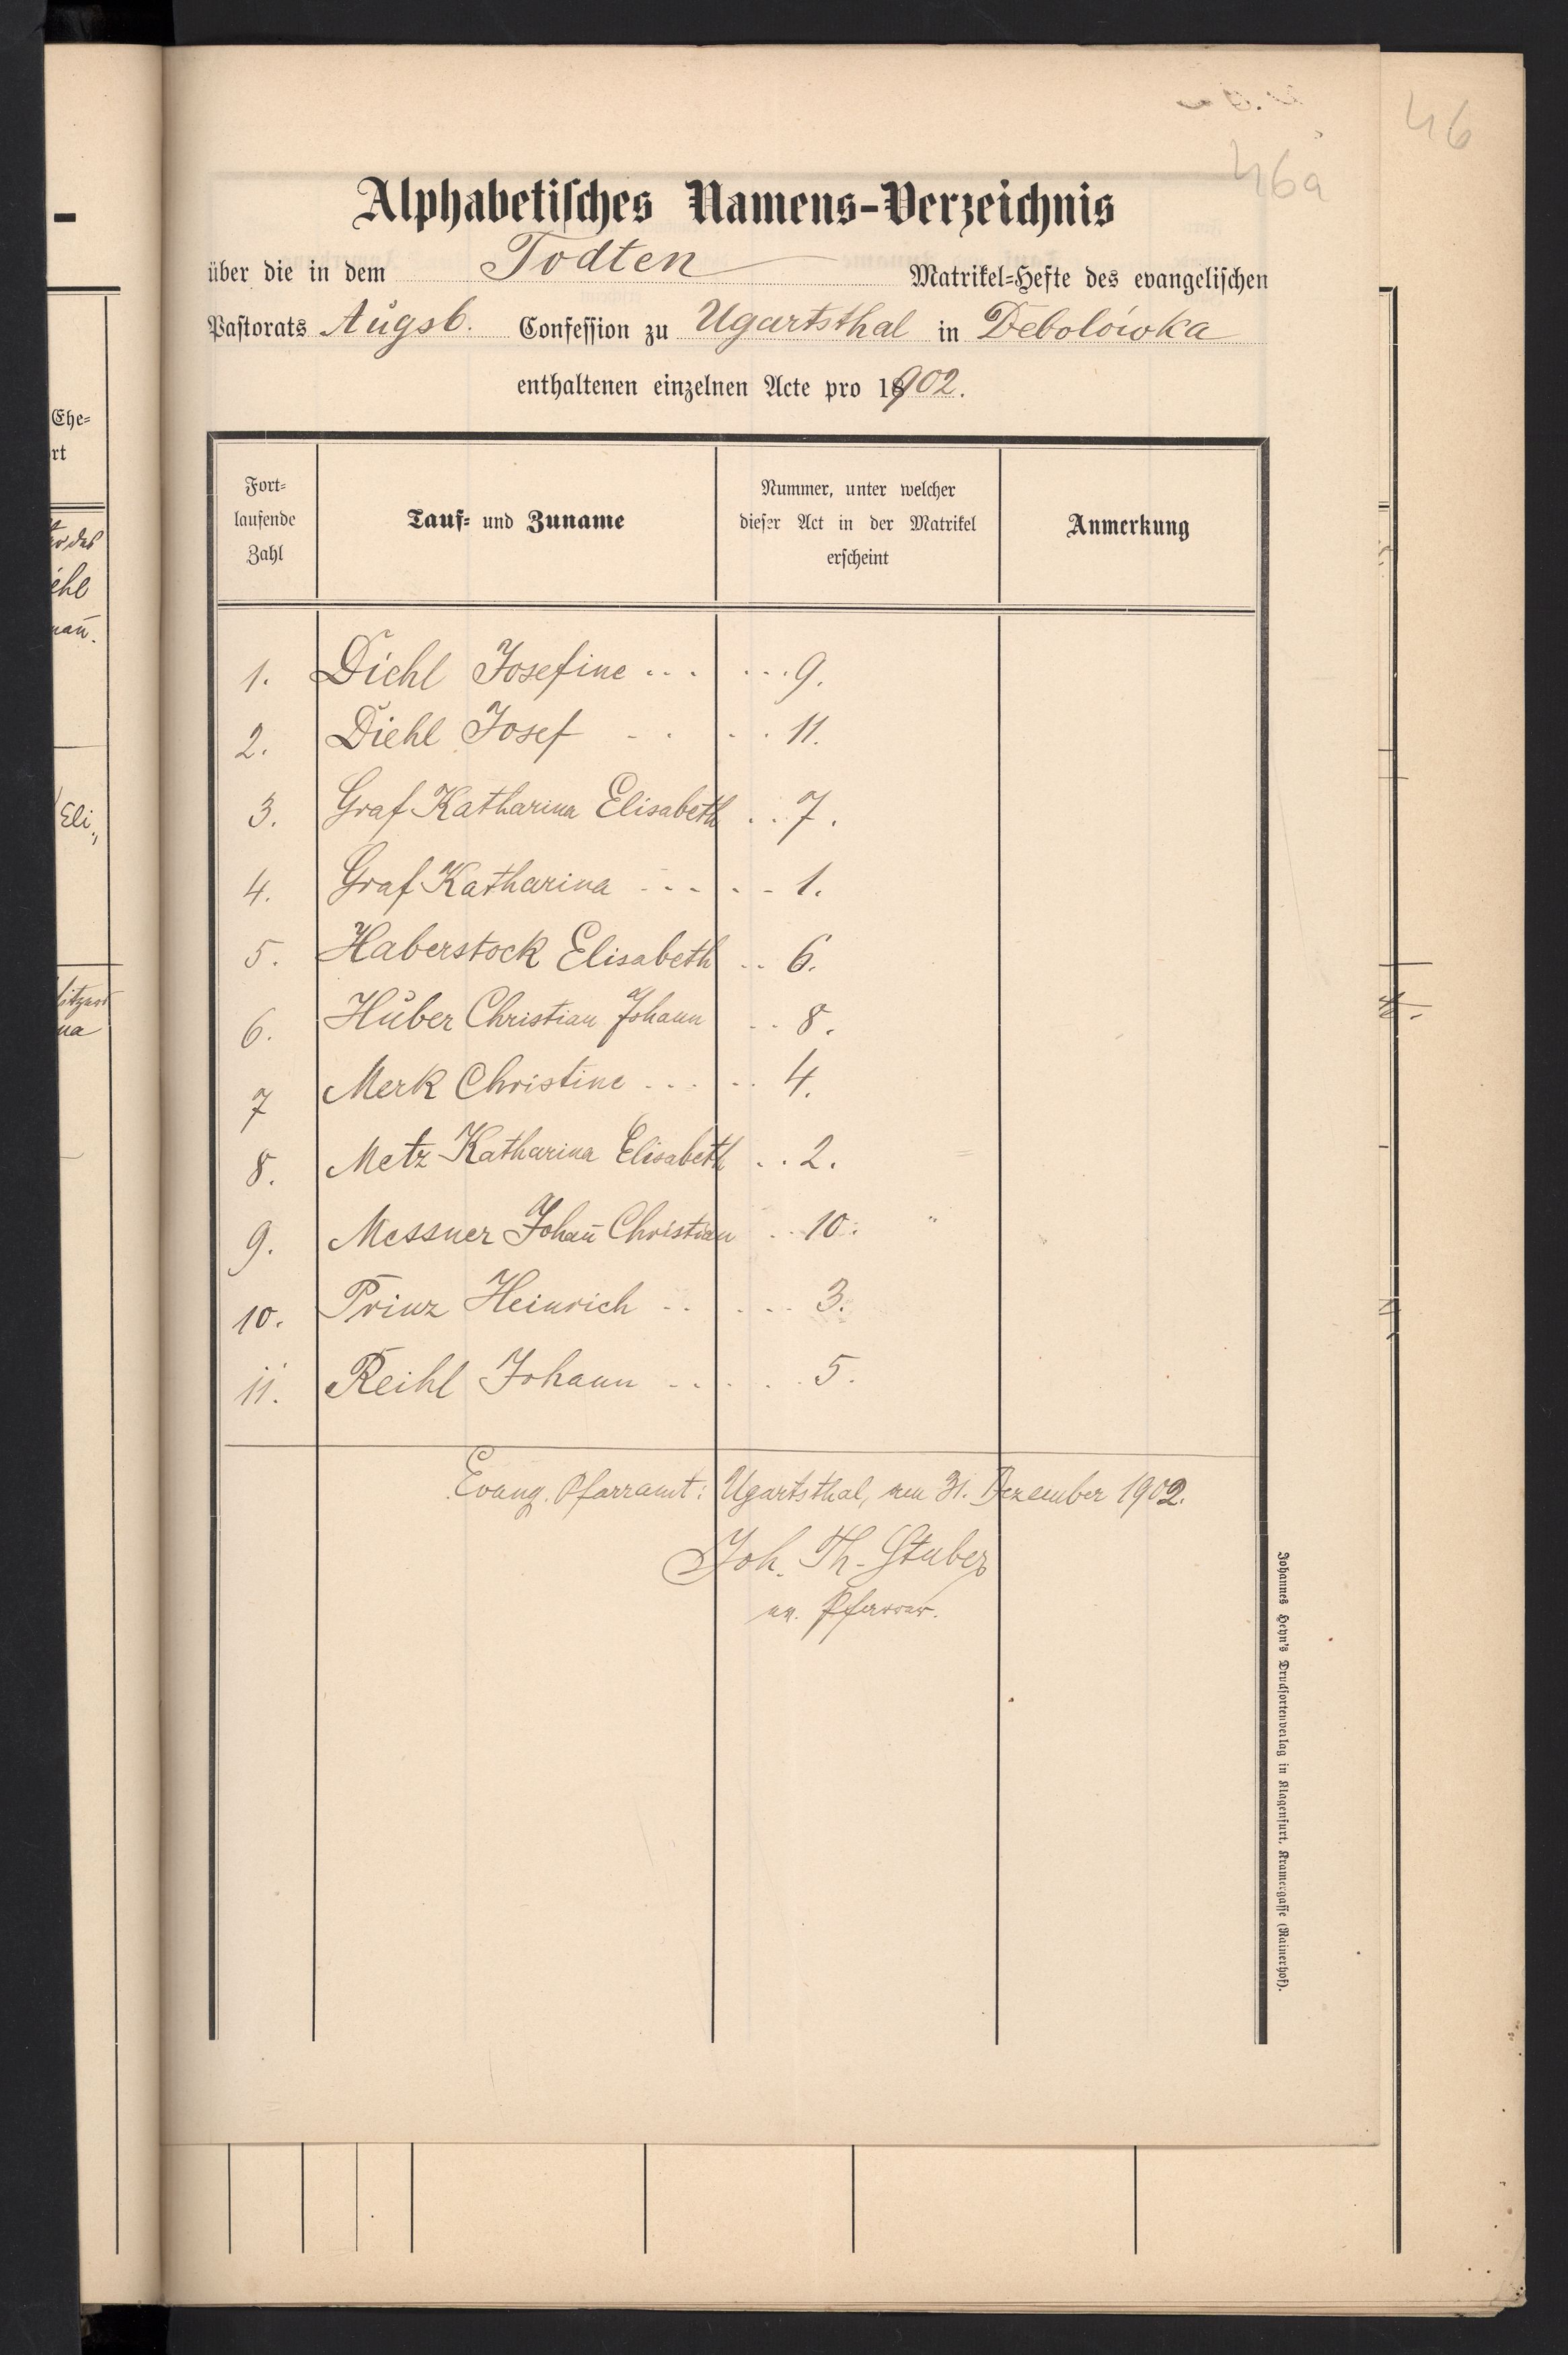 46
46a
Alphabetisches Namens-Verzeichnis
über die in dem Todten Matrikel-Hefte des evangelischen
Pastorats Augsb. Confession zu Ugartsthal in Debolówka
enthaltenen einzelnen Acte pro 18902.
Fort-
laufende
Zahl
Tauf- und Zuname
Nummer, unter welcher
dieser Act in der Matrikel
erscheint
Anmerkung
1. Diehl Josefine ... ... 9.
2. Diehl Josef - . . . 11.
3. Graf Katharina Elisabeth . . 7.
4. Graf Katharina - - - - - 1.
5. Haberstock Elisabeth .. 6.
6. Huber Christian Johann .. 8.
7 Merk Christine ... .. 4.
8. Metz Katharina Elisabeth . . 2.
9. Messner Johan̄ Christian .. 10.
10. Prinz Heinrich .. ... 3.
11. Reihl Johann .. ... 5.
Evang. Pfarramt: Ugartsthal, am 31. Dezember 1902.
Joh. Th. Stuber
ev. Pfarrer.
Johannes Heyn's Drucksortenverlag in Klagenfurt, Kramergasse (Rainerhof).
Ehe-
rt
des
Eli„